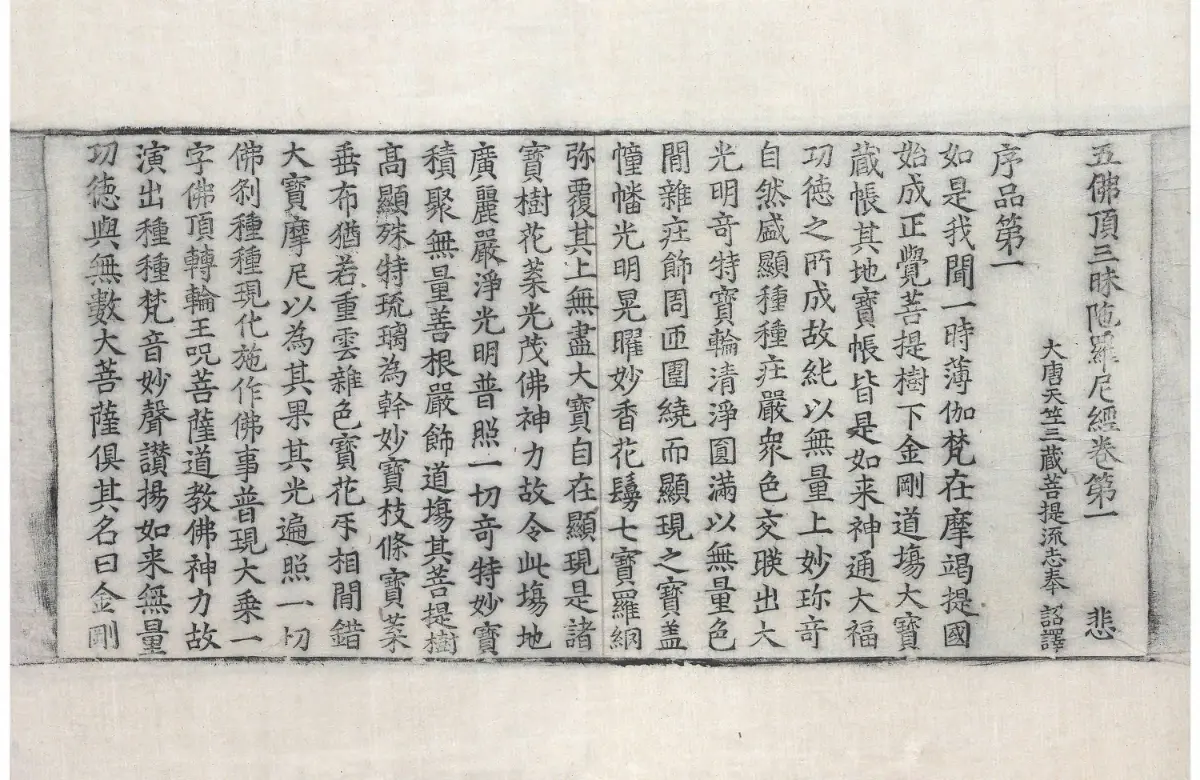 五佛頂三昧陁羅尼經卷第一 悲
大唐天竺三藏菩提流志奉 詔譯
序品第一
如是我聞一時薄伽梵在摩竭提國
始成正覺菩提樹下金剛道塲大寶
藏帳其地寶帳皆是如来神通大福
功徳之所成故純以無量上妙珎奇
自然盛顯種種疘嚴衆色交暎出大
光明奇特寶輪清淨圓滿以無量色
閒雜疘飾周迊圍繞而顯現之寶盖
幢幡光明晃曜妙香花鬘七寶羅網
弥覆其上無盡大寶自在顯現是諸
寶樹花菓光茂佛神力故令此塲地
廣麗嚴淨光明普照一切奇特妙寶
積聚無量善根嚴飾道塲其菩提樹
高顯殊特琉璃為幹妙寶枝條寶菓
垂布猶若重雲雜色寶花𠀍相閒錯
大寶摩尼以為其果其光遍照一切
佛刹種種現化施作佛事普現大乗一
字佛頂轉輪王呪菩薩道教佛神力故
演出種種梵音妙聲讃揚如来無量
功徳與無數大菩薩俱其名曰金剛